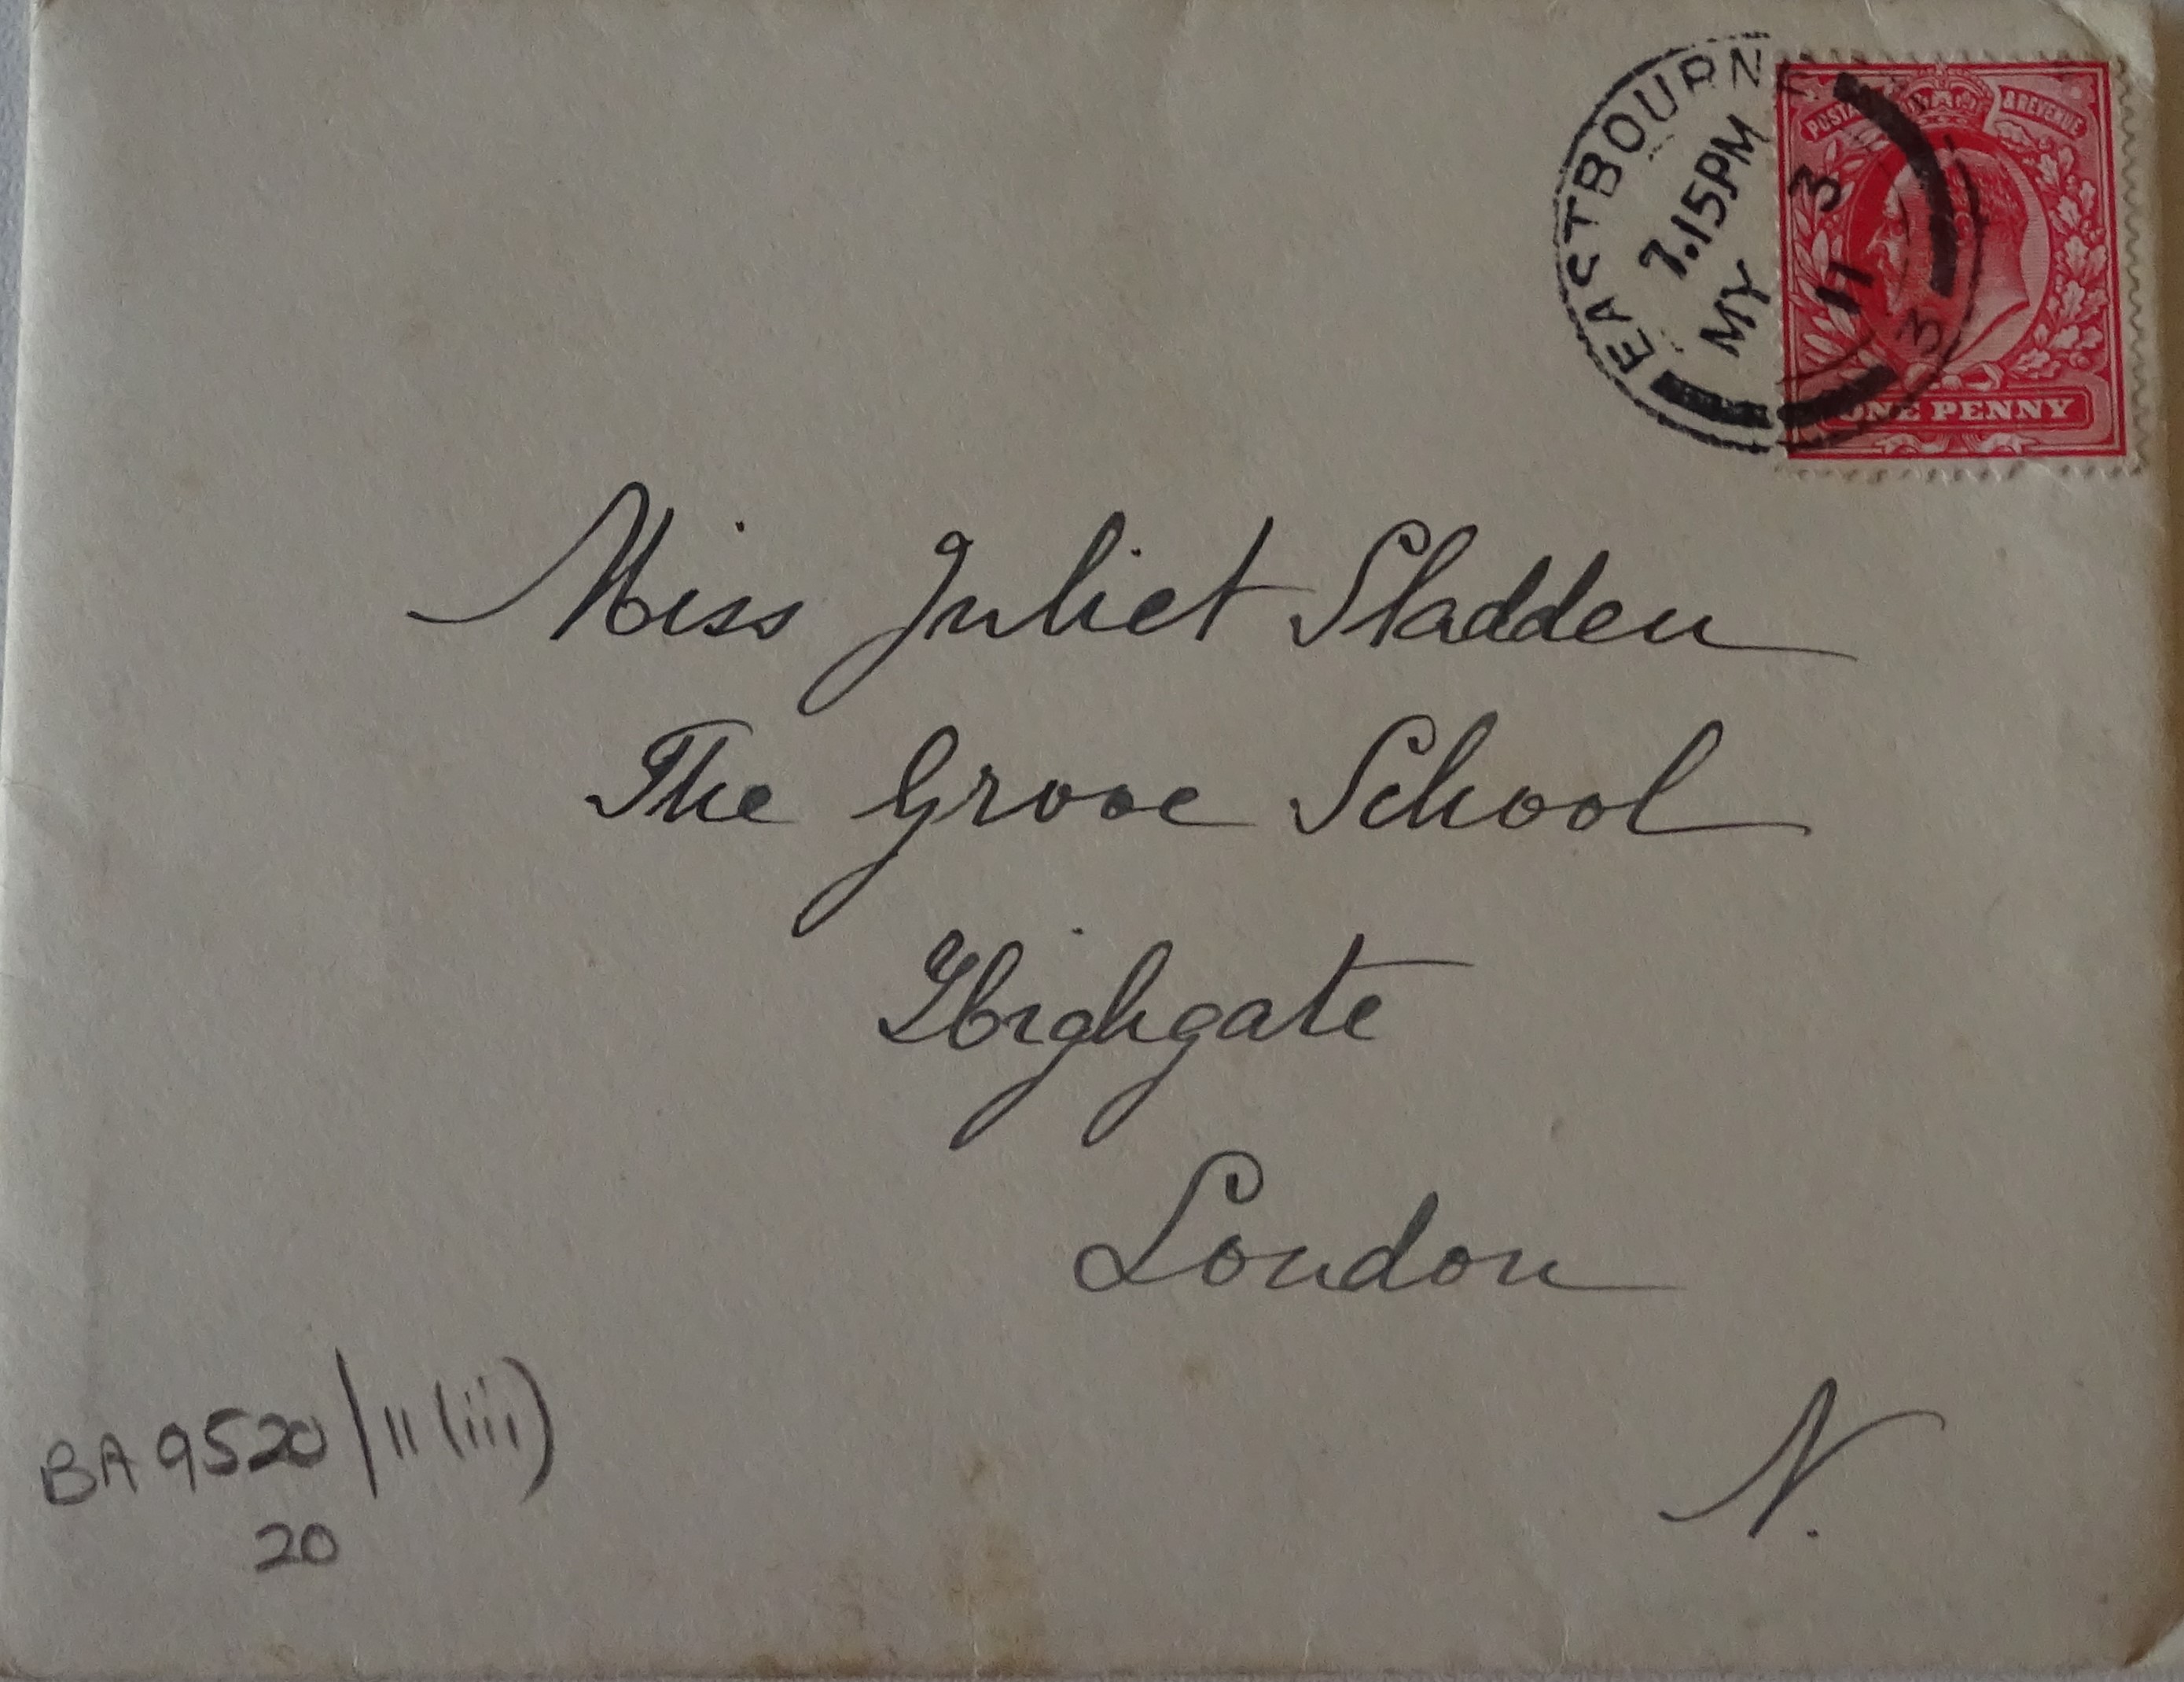 EASTBOURNE
7.15PM
MY 3
11
3
POSTAGE & REVENUE
ONE PENNY
Miss Juliet Sladden
The Grove School
Highgate
London
N.
BA 9520/11(iii)
20